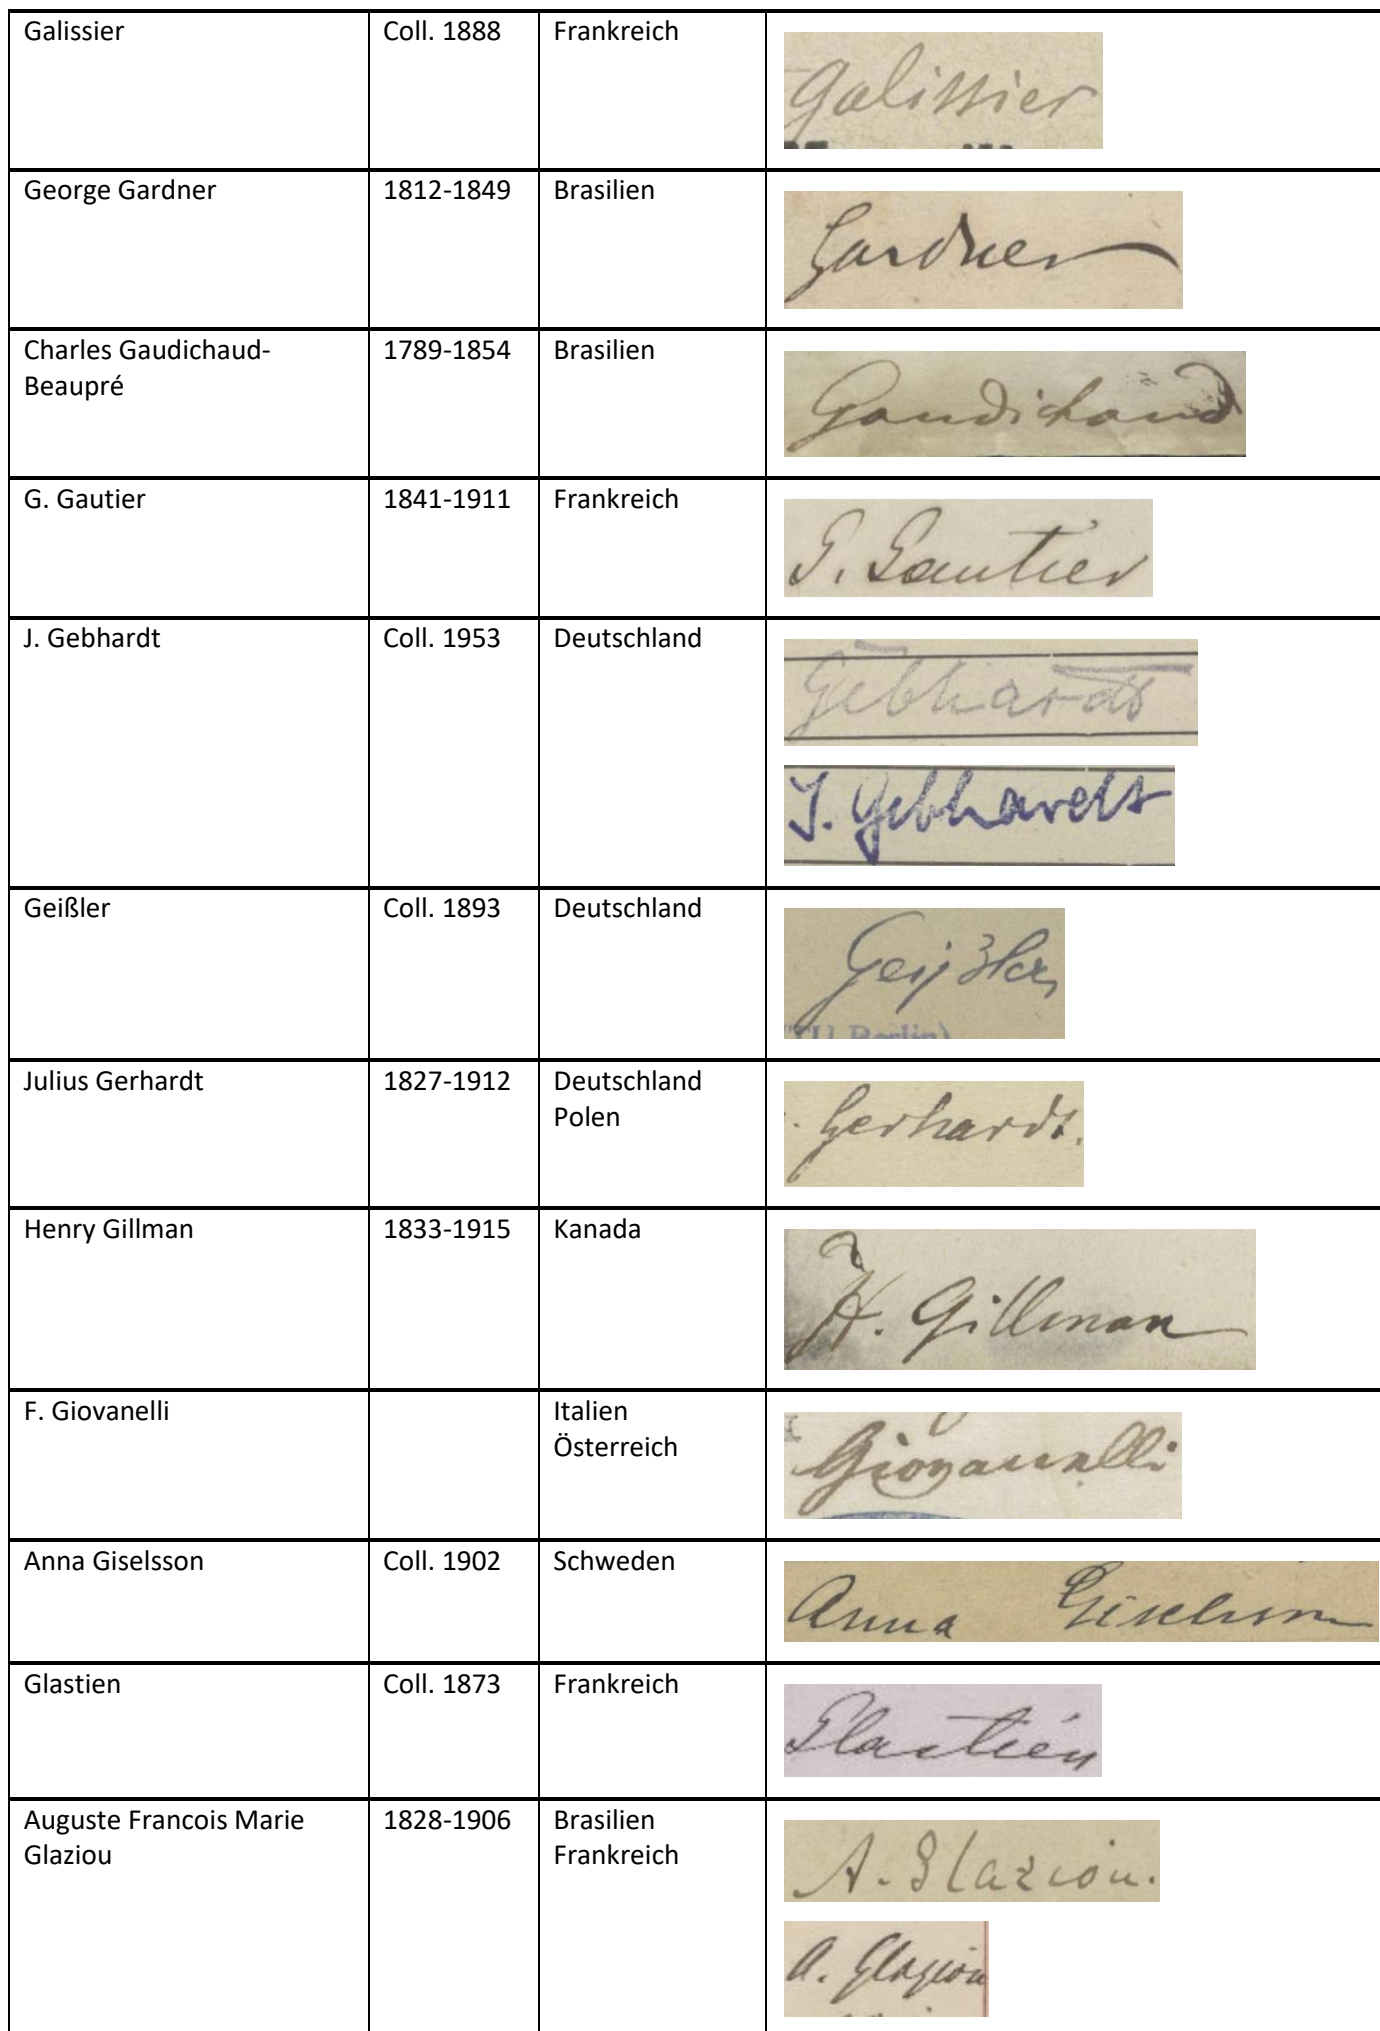 Galissier Coll. 1888 Frankreich Galissier
George Gardner 1812-1849 Brasilien Gardner
Charles Gaudichaud- 1789-1854 Brasilien Gaudichaud
Beaupré
G. Gautier 1841-1911 Frankreich G. Gautier
J. Gebhardt Coll. 1953 Deutschland Gebhardt
J. Gebhardt
Geißler Coll. 1893 Deutschland Geißler
TU Berlin)
Julius Gerhardt 1827-1912 Deutschland Gerhardt.
Polen
Henry Gillman 1833-1915 Kanada H. Gillman
F. Giovanelli Italien Giovanelli
Österreich
Anna Giselsson Coll. 1902 Schweden Anna Giselsson
Glastien Coll. 1873 Frankreich Glastien
Auguste Francois Marie 1828-1906 Brasilien A. Glaziou.
Glaziou Frankreich
A. Glaziou